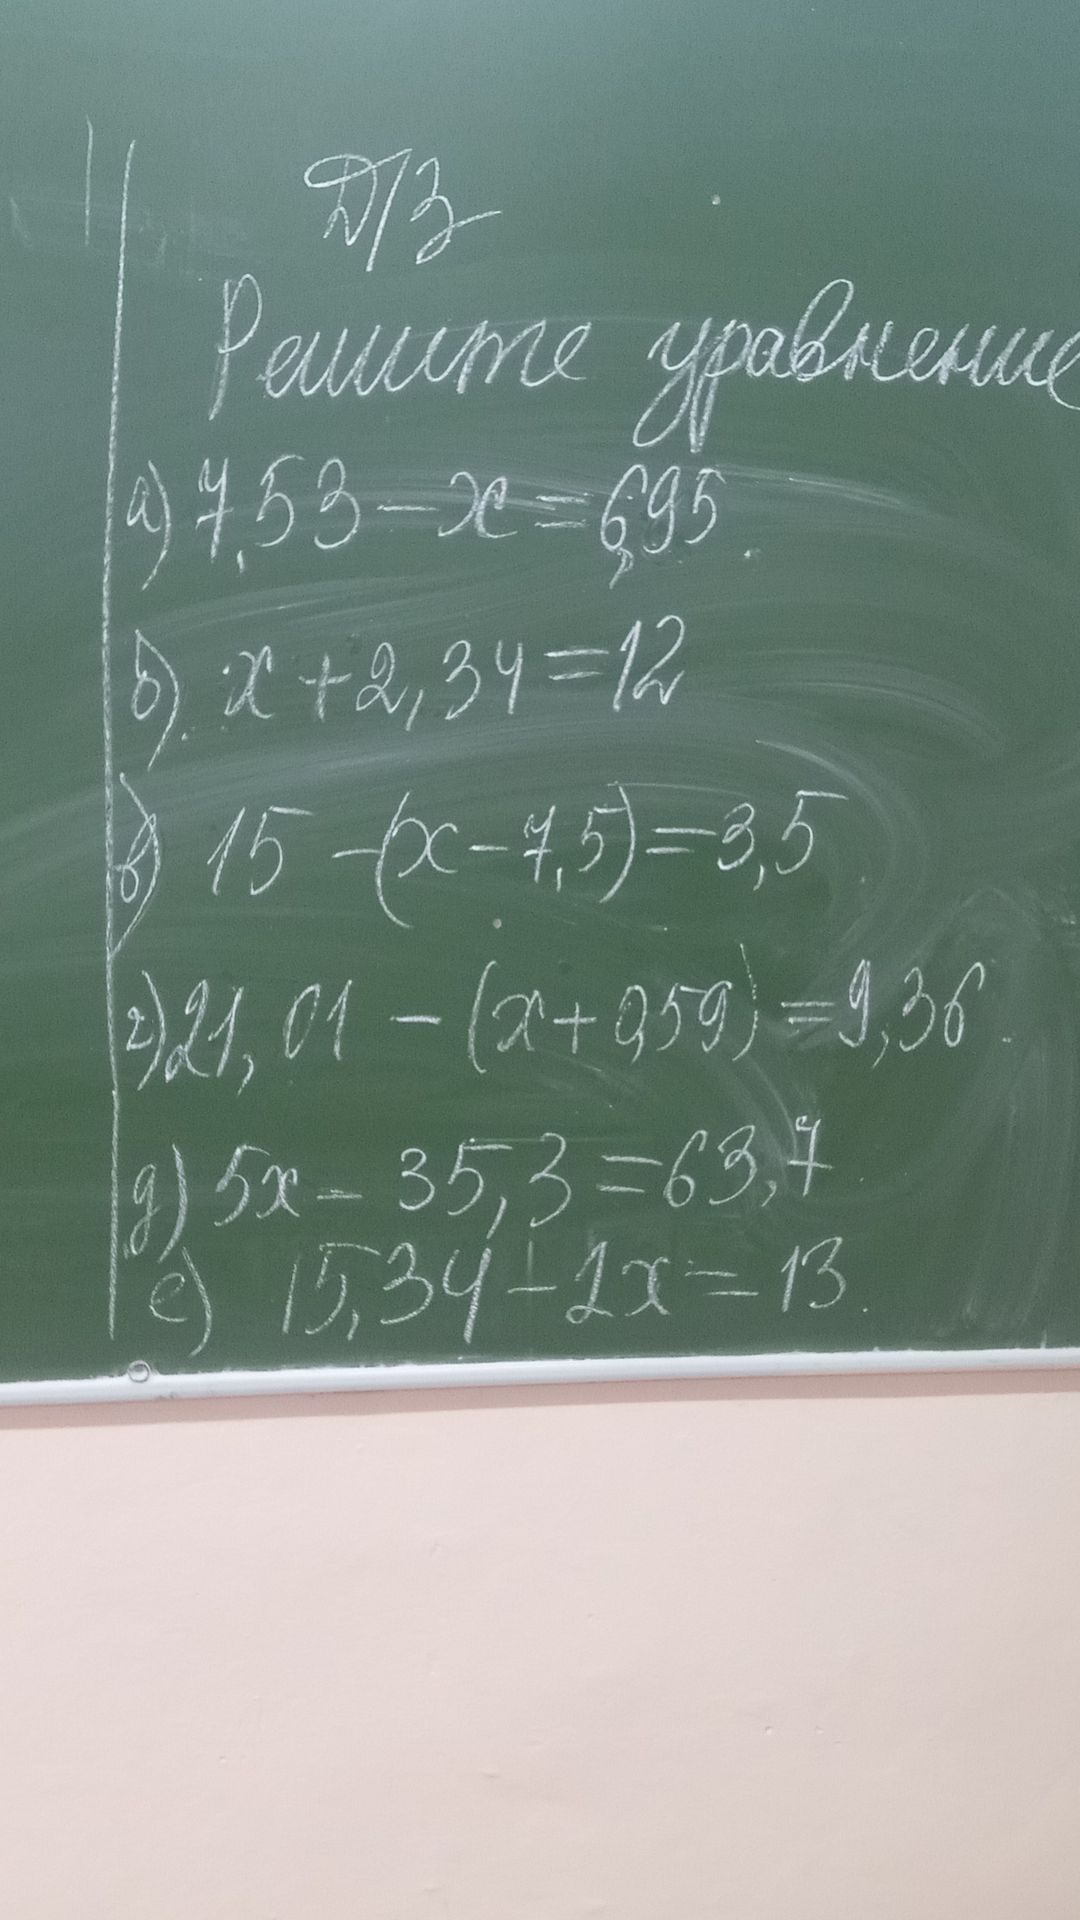 Д/З
Решите уравнение
а) 7,53 - x = 6,95
б) x + 2,34 = 12
в) 15 - (x - 7,5) = 3,5
г) 21,01 - (x + 0,59) = 9,36
д) 5x - 35,3 = 63,7
е) 15,34 - 2x = 13